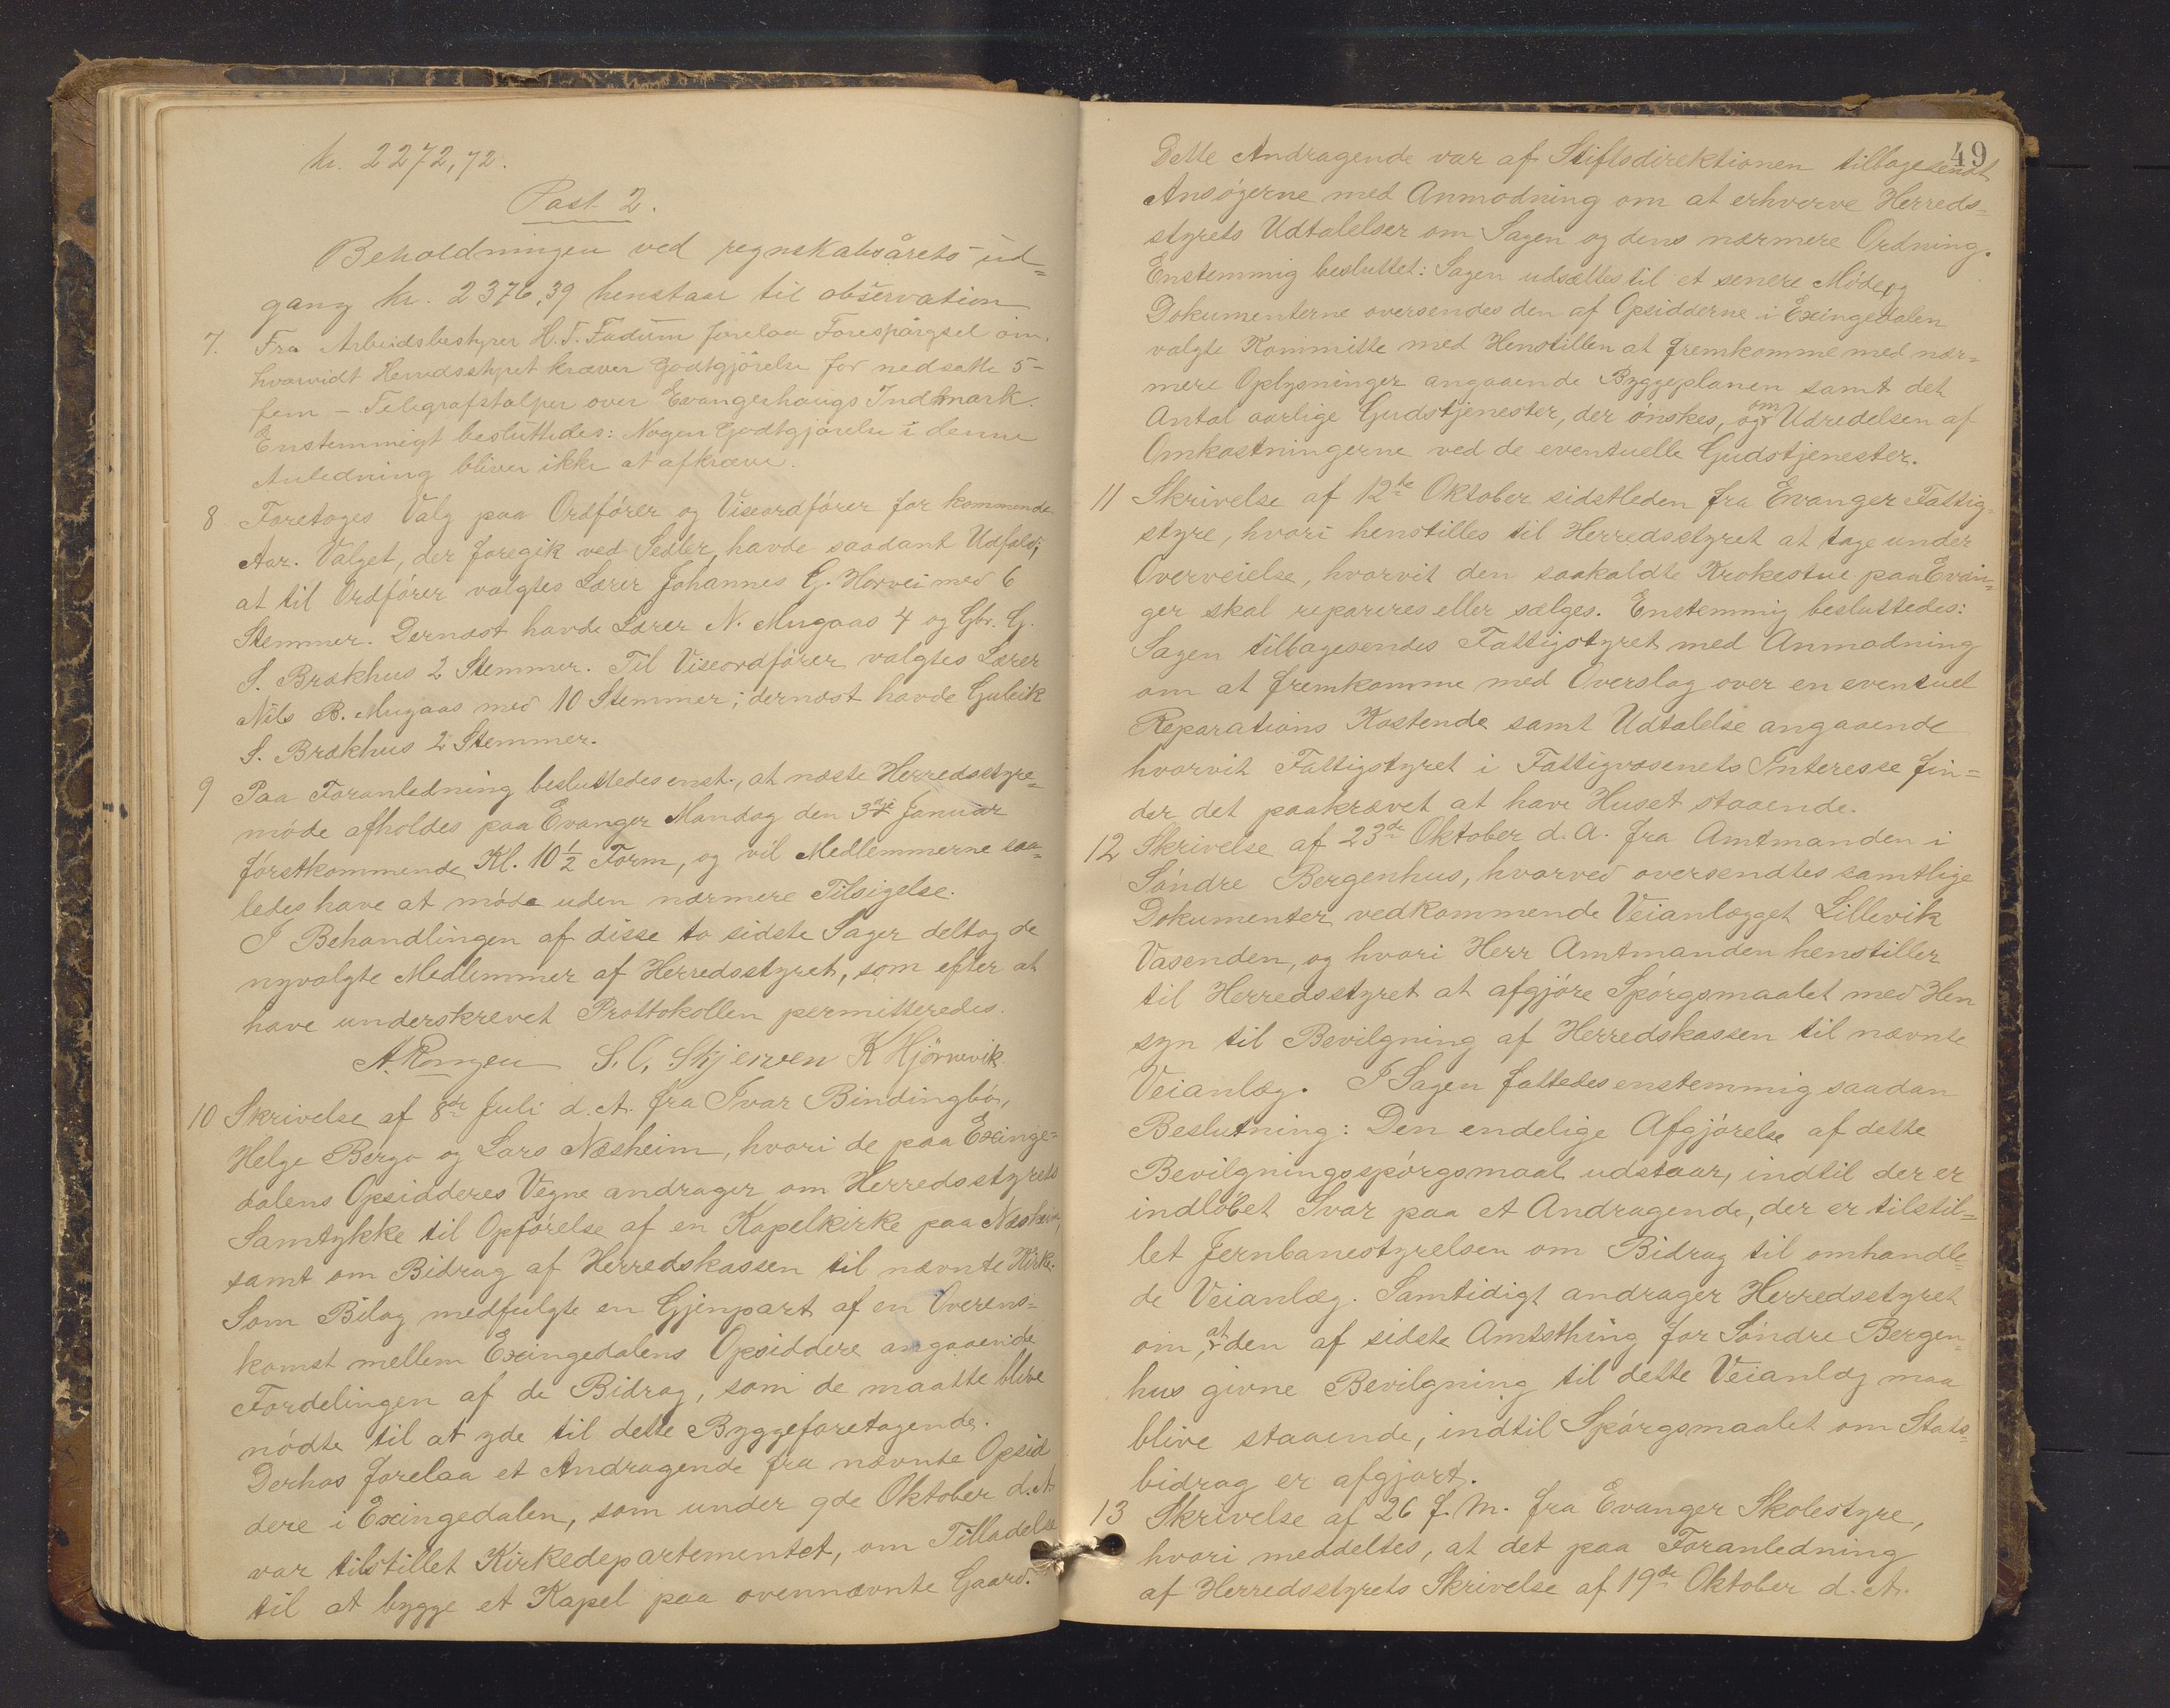 kr. 2272,72.
Post 2.
Beholdningen ved regnskabsårets ud=
gang kr. 2376,39 henstaar til observation
7. Fra Arbeidsbestyrer H. T. Fadum forelaa Forespørgsel om,
hvorvidt Herredsstyret kræver Godtgjörelse for nedsatte 5-
fem - Telegrafstolper over Evangerhaugs Indmark.
Enstemmigt besluttedes: Nogen Godtgjörelse i denne
Anledning bliver ikke at afkræve.
8 Foretoges Valg paa Ordförer og Viseordförer for kommende
Aar. Valget, der foregik ved Sedler, havde saadant Udfald;
at til Ordförer valgtes Lærer Johannes G. Horvei med 6
Stemmer. Dernæst havde Lærer N. Mugaas 4 og Gbr. G.
S. Brækhus 2 Stemmer. Til Viseordförer valgtes Lærer
Nils B. Mugaas med 10 Stemmer; dernæst havde Guleik
S. Brækhus 2 Stemmer.
9 Paa Foranledning besluttedes enst., at næste Herredsstyre=
möde afholdes paa Evanger Mandag den 3die Januar
förstkommende Kl. 10 1/2 Form, og vil Medlemmerne saa=
ledes have at möde uden nærmere Tilsigelse.
I Behandlingen af disse to sidste Sager deltog de
nyvalgte Medlemmer af Herredsstyret, som efter at
have underskrevet Prottokollen permitteredes.
A. Rongen S. O. Skjerven K Hjörnevik.
10 Skrivelse af 8de Juli d. A. fra Ivar Bindingbö,
Helge Bergo og Lars Næsheim, hvori de paa Exinge=
dalens Opsidderes Vegne andrager om Herredsstyrets
Samtykke til Opförelse af en Kapelkirke paa Næsheim,
samt om Bidrag af Herredskassen til nævnte Kirke.
Som Bilag medfulgte en Gjenpart af en Overens=
komst mellem Exingedalens Opsiddere angaaende
Fordelingen af de Bidrag, som de maatte blive
nödte til at yde til dette Byggeforetagende.
Derhos forelaa et Andragende fra nævnte Opsid
dere i Exingedalen, som under 9de Oktober d. A.
var tilstillet Kirkedepartementet, om Tilladelse
til at bygge et Kapel paa ovennævnte Gaard.
49
Dette Andragende var af Stiftsdirektionen tilbagesendt
Ansögerne med Anmodning om at erhverve Herreds=
styrets Udtalelser om Sagen og dens nærmere Ordning.
Enstemmig besluttet: Sagen udsættes til et senere Möde, og
Dokumenterne oversendes den af Opsidderne i Exingedalen
valgte Kommitte med Henstillen at fremkomme med nær=
mere Oplysninger angaaende Byggeplanen samt det
Antal aarlige Gudstjenester, der önskes, og om Udredelsen af
Omkostningerne ved de eventuelle Gudstjenester.
11 Skrivelse af 12te Oktober sidstleden fra Evanger Fattig=
styre, hvori henstilles til Herredsstyret at tage under
Overveielse, hvorvit den saakaldte Krokestue paa Evan=
ger skal repareres eller sælges. Enstemmig besluttedes:
Sagen tilbagesendes Fattigstyret med Anmodning
om at fremkomme med Overslag over en eventuel
Reparations Kostende samt Udtalelse angaaende
hvorvit Fattigstyret i Fattigvæsenets Interesse fin=
der det paakrævet at have Huset staaende.
12 Skrivelse af 23de Oktober d. A. fra Amtmanden i
Söndre Bergenhus, hvorved oversendtes samtlige
Dokumenter vedkommende Veianlægget Lillevik
Vasenden, og hvori Herr Amtmanden henstiller
til Herredsstyret at afgjöre Spörgsmaalet med Hen
syn til Bevilgning af Herredskassen til nævnte
Veianlæg. I Sagen fattedes enstemmig saadan
Beslutning: Den endelige Afgjörelse af dette
Bevilgningsspörgsmaal udstaar, indtil der er
indlöbet Svar paa et Andragende, der er tilstil=
let Jernbanestyrelsen om Bidrag til omhandle=
de Veianlæg. Samtidigt andrager Herredsstyret
om, at den af sidste Amtsthing for Söndre Bergen=
hus givne Bevilgning til dette Veianlæg maa
blive staaende, indtil Spörgsmaalet om Stats=
bidrag er afgjort.
13 Skrivelse af 26 f. M. fra Evanger Skolestyre,
hvori meddeltes, at det paa Foranledning
af Herredsstyrets Skrivelse af 19de Oktober d. A.